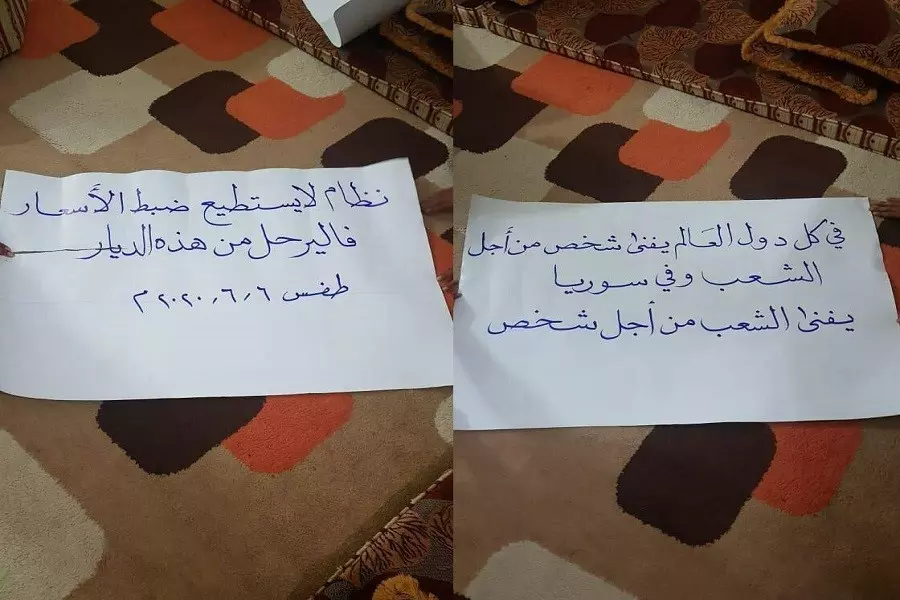 نظام لا يستطيع ضبط الأسعار
فاليرحل من هذه الديار
طفس ٢٠٢٠/٦/٦ م
في كل دول العالم يفنى شخص من أجل
الشعب وفي سوريا
يفنى الشعب من أجل شخص